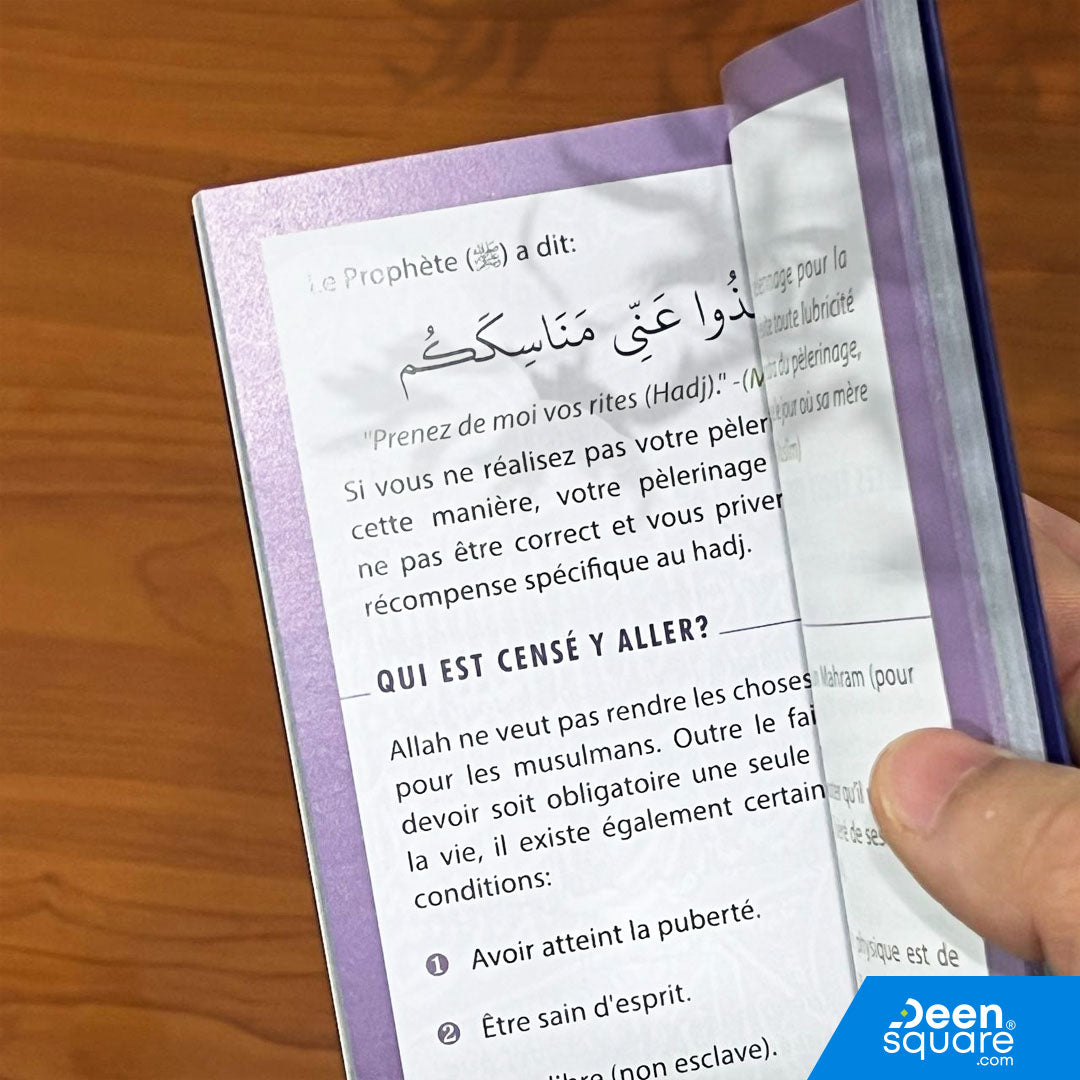 Le Prophète (ﷺ) a dit:
ذُوا عَنِّي مَنَاسِكَكُم
"Prenez de moi vos rites (Hadj)." -(M
Si vous ne réalisez pas votre pèler
cette manière, votre pèlerinage
ne pas être correct et vous priver
récompense spécifique au hadj.
QUI EST CENSÉ Y ALLER?
Allah ne veut pas rendre les choses
pour les musulmans. Outre le fai
devoir soit obligatoire une seule
la vie, il existe également certain
conditions:
1 Avoir atteint la puberté.
2 Être sain d'esprit.
libre (non esclave).
pour la
toute lubricité
du pèlerinage,
jour où sa mère
Mahram (pour
qu'il
de ses
physique est de
Deen
square®
.com